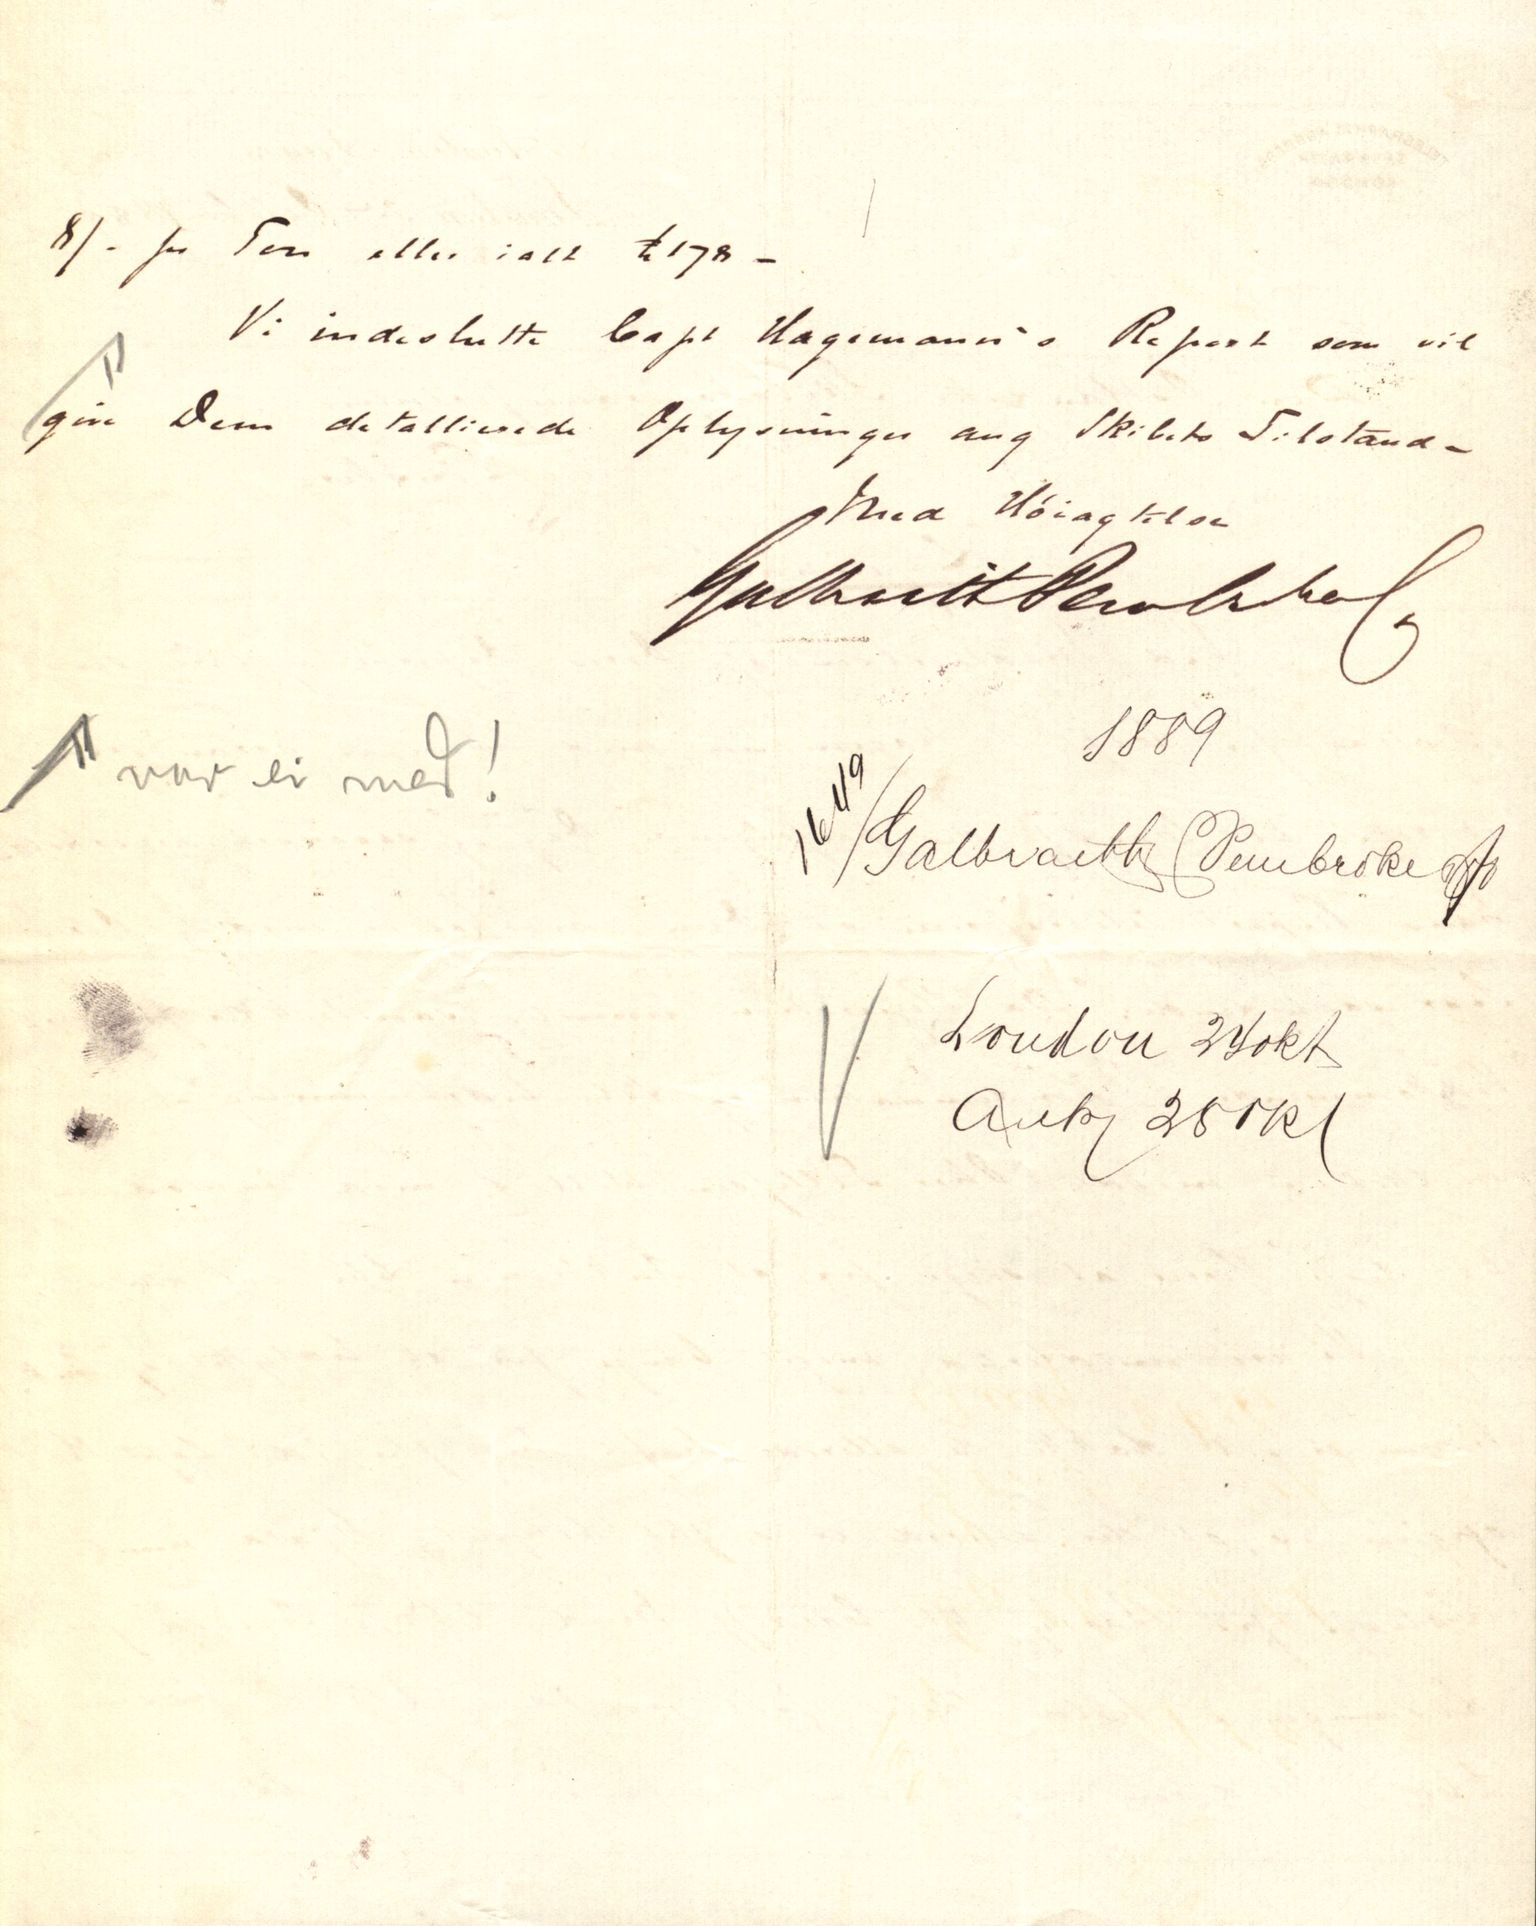 8/- pr Ton eller ialt £178 -
Vi indeslutte Capt Hagemann's Report som vil
give Dem detallierede Oplysninger ang Skibets Tilstand -
Med Höiagtelse
Galbraith Pembroke & Co
1889
var ei med!
1649/ Galbraith Pembroke & Co
London 24 okt
Ank 28 okt